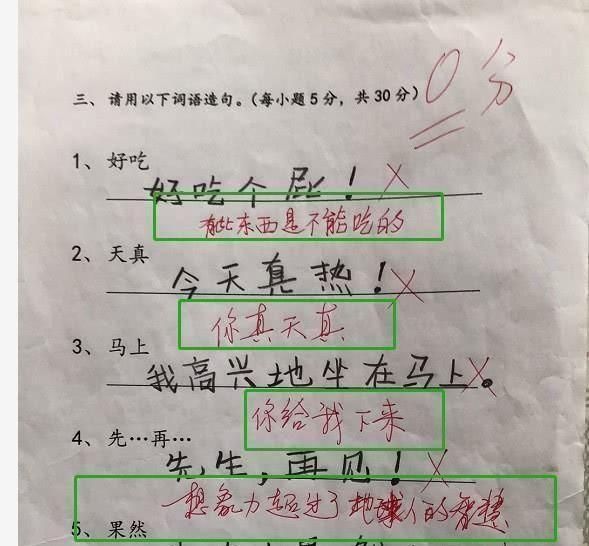 三、请用以下词语造句。(每小题5分,共30分)
0分
1、好吃
好吃个屁!
有些东西是不能吃的
2、天真
今天真热!
你真天真
3、马上
我高兴地坐在马上。
你给我下来
4、先…再…
先生,再见!
想象力超过了地球人的智慧
5、果然